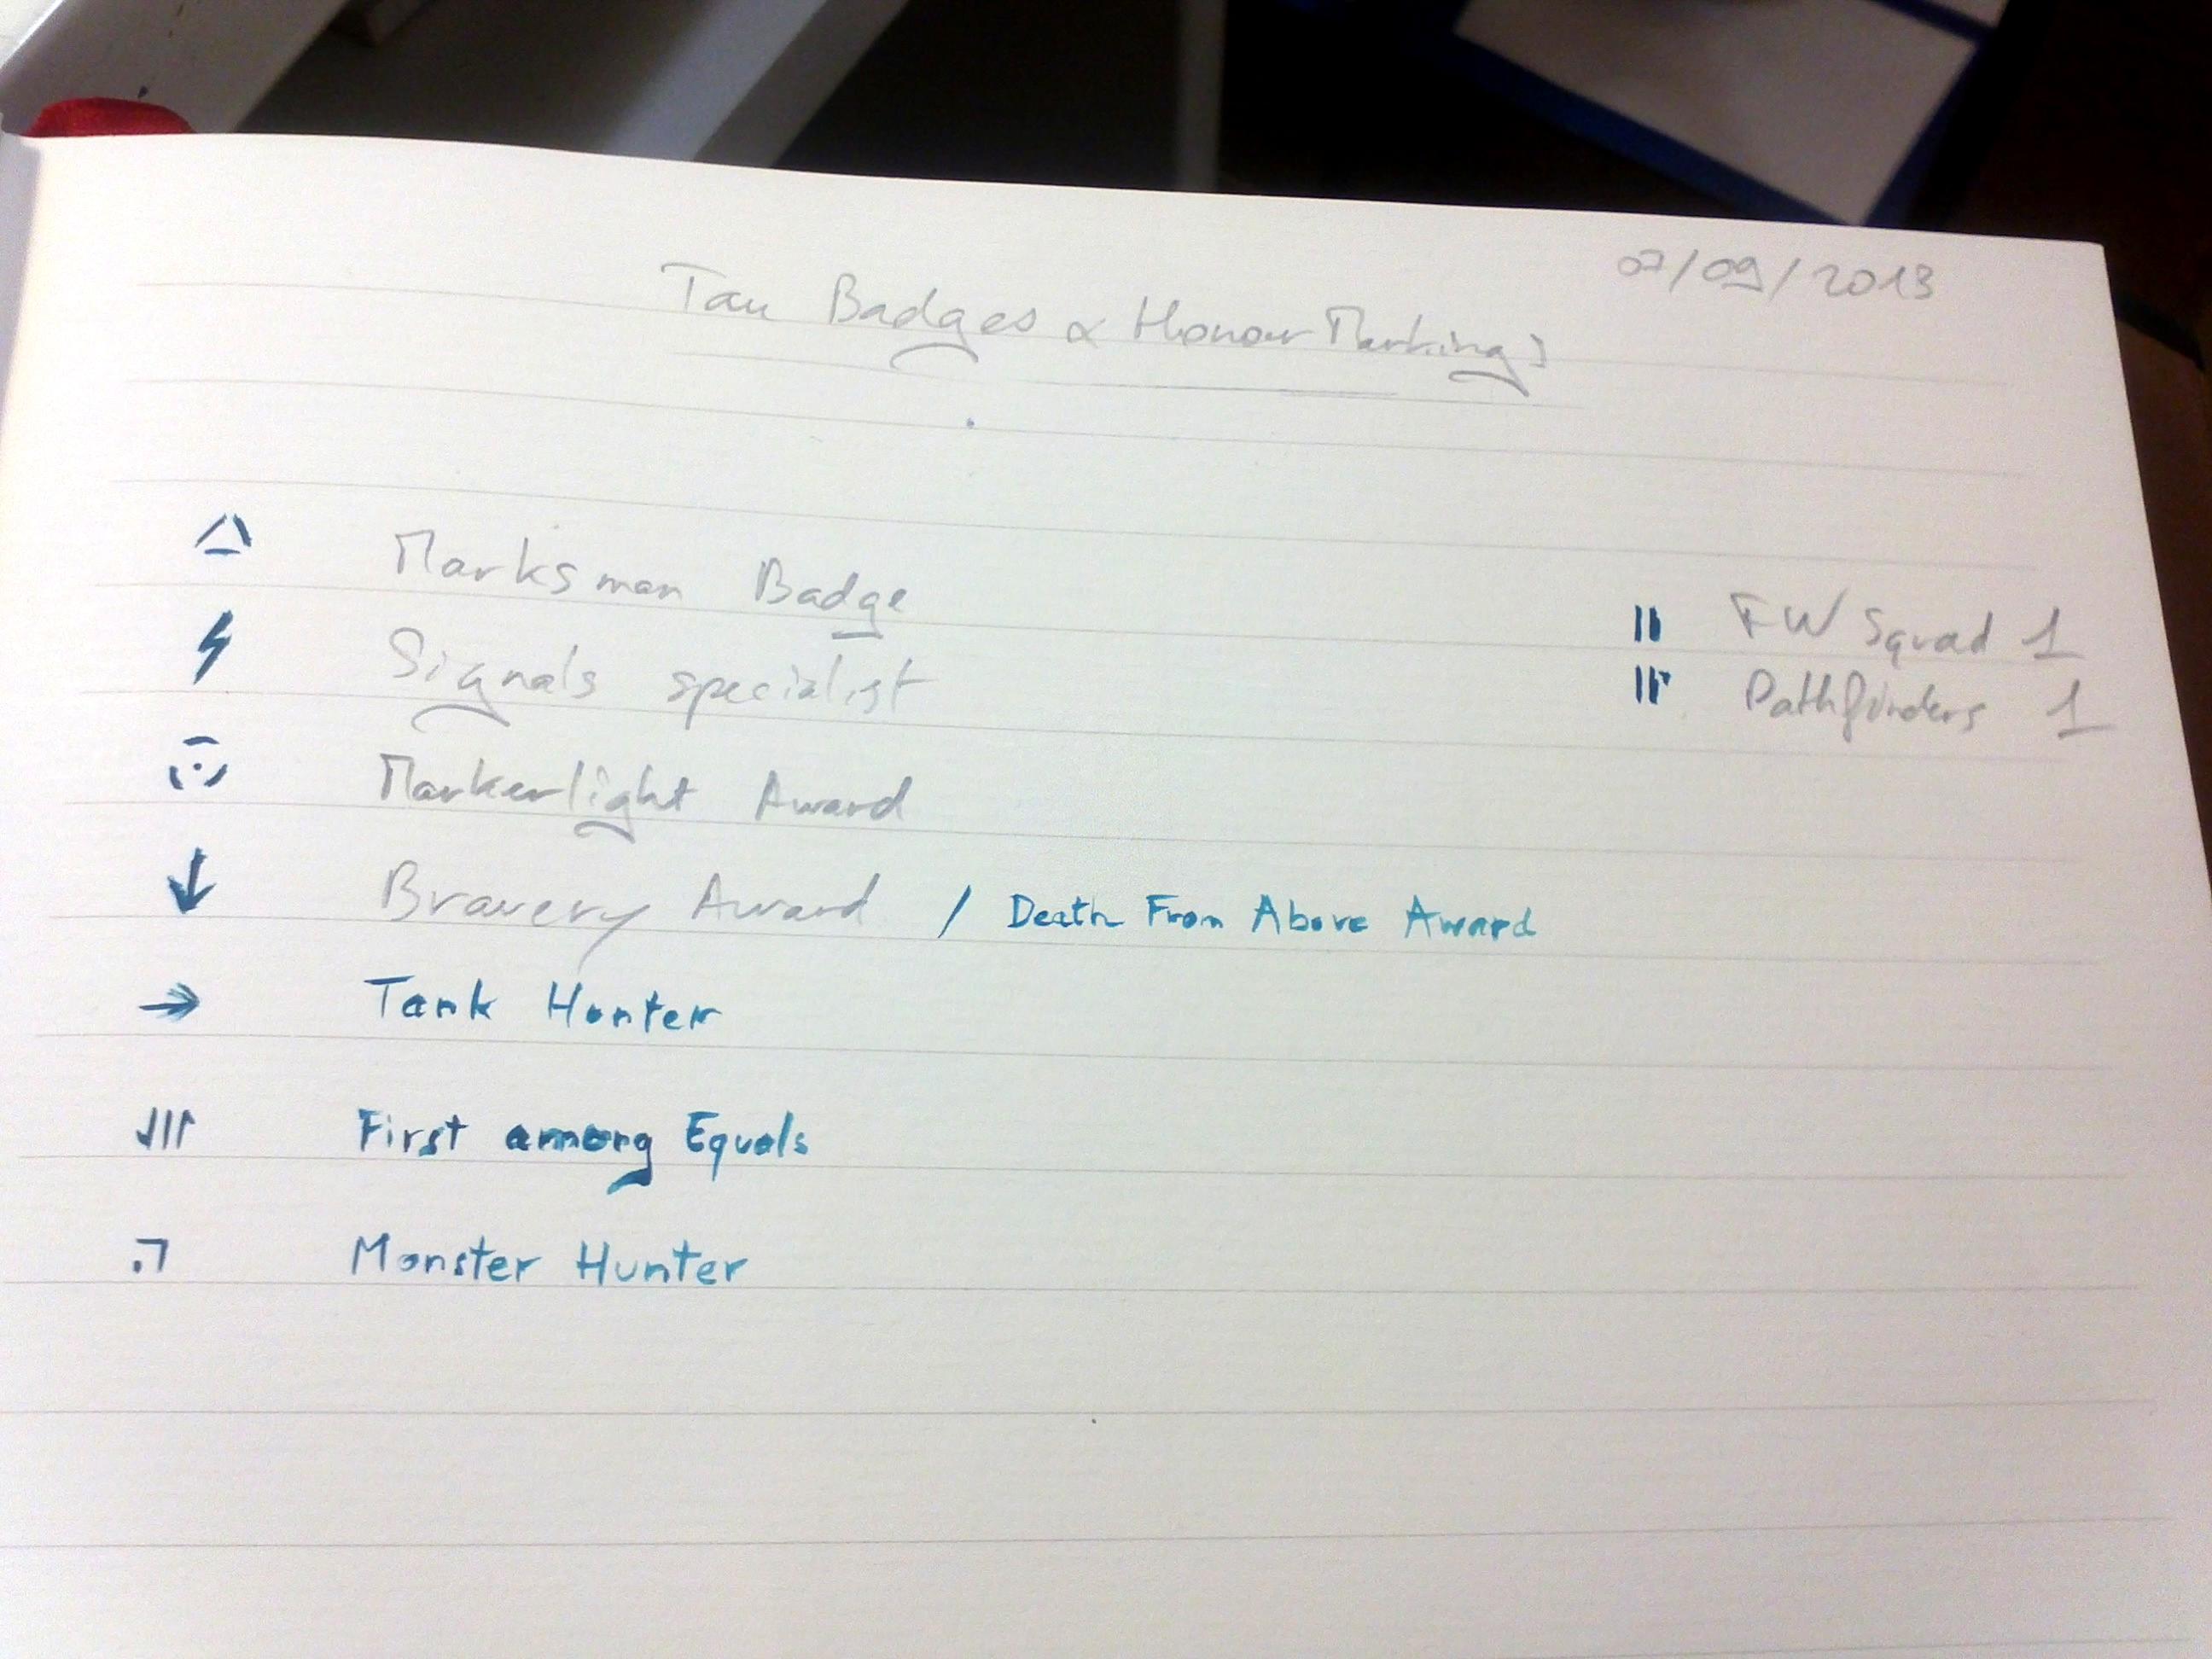 07/09/2013
Tau Badges & Honour Markings
Marksman Badge
Signals specialist
Markerlight Award
Bravery Award / Death From Above Award
Tank Hunter
First among Equals
Monster Hunter
FW Squad 1
Pathfinders 1